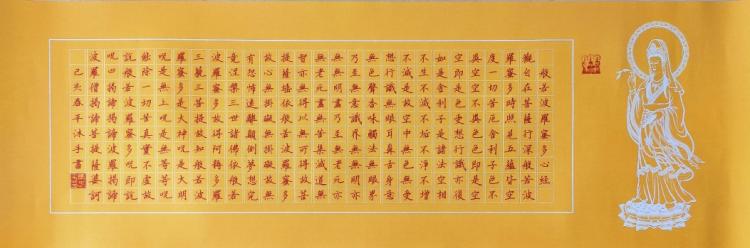 般若波羅蜜多心經
觀自在菩薩行深般若波
羅蜜多時照見五蘊皆空
度一切苦厄舍利子色不
異空空不異色色即是空
空即是色受想行識亦復
如是舍利子是諸法空相
不生不滅不垢不淨不增
不減是故空中無色無受
想行識無眼耳鼻舌身意
無色聲香味觸法無眼界
乃至無意識界無無明亦
無無明盡乃至無老死亦
無老死盡無苦集滅道無
智亦無得以無所得故菩
提薩埵依般若波羅蜜多
故心無罣礙無罣礙故無
有恐怖遠離顛倒夢想究
竟涅槃三世諸佛依般若
波羅蜜多故得阿耨多羅
三藐三菩提故知般若波
羅蜜多是大神咒是大明
咒是無上咒是無等等咒
能除一切苦真實不虛故
說般若波羅蜜多咒即說
咒曰揭諦揭諦波羅揭諦
波羅僧揭諦菩提薩婆訶
己亥春平沐手書